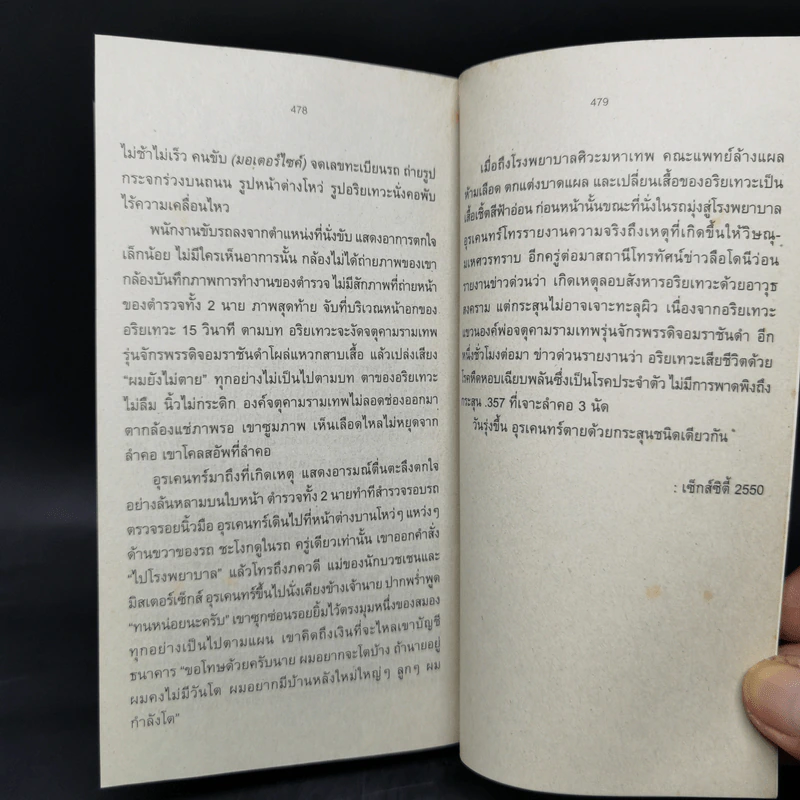 478
ไม่ช้าไม่เร็ว คนขับ (มอเตอร์ไซค์) จดเลขทะเบียนรถ ถ่ายรูป
กระจกร่วงบนถนน รูปหน้าต่างโหว่ รูปอริยเทวะนั่งคอพับ
ไร้ความเคลื่อนไหว
พนักงานขับรถลงจากตำแหน่งที่นั่งขับ แสดงอาการตกใจ
เล็กน้อย ไม่มีใครเห็นอาการนั้น กล้องไม่ได้ถ่ายภาพของเขา
กล้องบันทึกภาพการทำงานของตำรวจ ไม่มีสักภาพที่ถ่ายหน้า
ของตำรวจทั้ง 2 นาย ภาพสุดท้าย จับที่บริเวณหน้าอกของ
อริยเทวะ 15 วินาที ตามบท อริยเทวะจะงัดจตุคามรามเทพ
รุ่นจักรพรรดิจอมราชันดำโผล่แหวกสาบเสื้อ แล้วเปล่งเสียง
“ผมยังไม่ตาย” ทุกอย่างไม่เป็นไปตามบท ตาของอริยเทวะ
ไม่ลืม นิ้วไม่กระดิก องค์จตุคามรามเทพไม่ลอดช่องออกมา
ตากล้องแช่ภาพรอ เขาซูมภาพ เห็นเลือดไหลไม่หยุดจาก
ลำคอ เขาโคลสอัพที่ลำคอ
อุรเคนทร์มาถึงที่เกิดเหตุ แสดงอารมณ์ตื่นตะลึงตกใจ
อย่างล้นหลามบนใบหน้า ตำรวจทั้ง 2 นายทำทีสำรวจรอบรถ
ตรวจรอยนิ้วมือ อุรเคนทร์เดินไปที่หน้าต่างบานโหว่ๆ แหว่งๆ
ด้านขวาของรถ ชะโงกดูในรถ ครู่เดียวเท่านั้น เขาออกคำสั่ง
“ไปโรงพยาบาล” แล้วโทรถึงภควดี แม่ของนักบวชเชนและ
มิสเตอร์เซ็กส์ อุรเคนทร์ขึ้นไปนั่งเคียงข้างเจ้านาย ปากพร่ำพูด
“ทนหน่อยนะครับ” เขาซุกซ่อนรอยยิ้มไว้ตรงมุมหนึ่งของสมอง
ทุกอย่างเป็นไปตามแผน เขาคิดถึงเงินที่จะไหลเข้าบัญชี
ธนาคาร “ขอโทษด้วยครับนาย ผมอยากจะโตบ้าง ถ้านายอยู่
ผมคงไม่มีวันโต ผมอยากมีบ้านหลังใหม่ใหญ่ๆ ลูกๆ ผม
กำลังโต”
479
เมื่อถึงโรงพยาบาลศิวะมหาเทพ คณะแพทย์ล้างแผล
ห้ามเลือด ตกแต่งบาดแผล และเปลี่ยนเสื้อของอริยเทวะเป็น
เสื้อเชิ้ตสีฟ้าอ่อน ก่อนหน้านั้นขณะที่นั่งในรถมุ่งสู่โรงพยาบาล
อุรเคนทร์โทรรายงานความจริงถึงเหตุที่เกิดขึ้นให้วิษณุ-
มเหศวรทราบ อีกครู่ต่อมาสถานีโทรทัศน์ข่าวลือโดนีว่อน
รายงานข่าวด่วนว่า เกิดเหตุลอบสังหารอริยเทวะด้วยอาวุธ
สงคราม แต่กระสุนไม่อาจเจาะทะลุผิว เนื่องจากอริยเทวะ
แขวนองค์พ่อจตุคามรามเทพรุ่นจักรพรรดิจอมราชันดำ อีก
หนึ่งชั่วโมงต่อมา ข่าวด่วนรายงานว่า อริยเทวะเสียชีวิตด้วย
โรคหืดหอบเฉียบพลันซึ่งเป็นโรคประจำตัว ไม่มีการพาดพิงถึง
กระสุน .357 ที่เจาะลำคอ 3 นัด
วันรุ่งขึ้น อุรเคนทร์ตายด้วยกระสุนชนิดเดียวกัน
: เซ็กส์ซิตี้ 2550